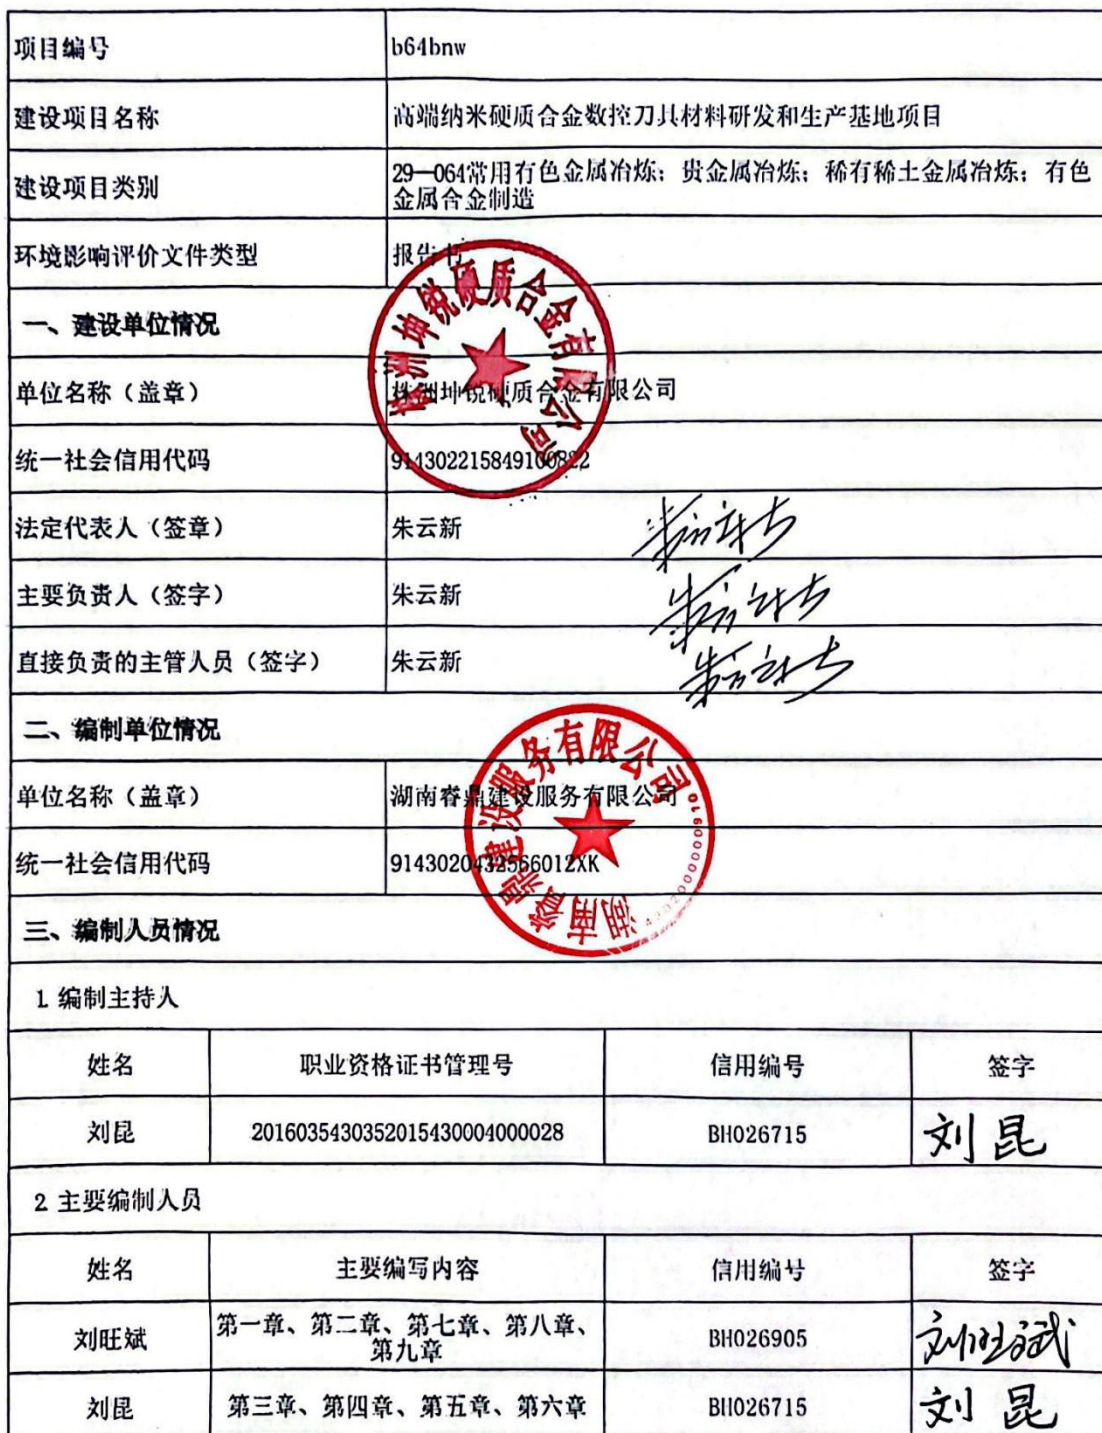 项目编号 b64bnw
建设项目名称 高端纳米硬质合金数控刀具材料研发和生产基地项目
建设项目类别 29—064常用有色金属冶炼；贵金属冶炼；稀有稀土金属冶炼；有色
金属合金制造
环境影响评价文件类型 报告书
一、建设单位情况
单位名称（盖章） 株洲坤锐硬质合金有限公司
株洲坤锐硬质合金有限公司
统一社会信用代码 914302215849100822
法定代表人（签章） 朱云新
主要负责人（签字） 朱云新
直接负责的主管人员（签字） 朱云新
二、编制单位情况
单位名称（盖章） 湖南睿鼎建设服务有限公司
湖南睿鼎建设服务有限公司
统一社会信用代码 9143020432566012XK
三、编制人员情况
1 编制主持人
姓名 职业资格证书管理号 信用编号 签字
刘昆 2016035430352015430004000028 BH026715 刘昆
2 主要编制人员
姓名 主要编写内容 信用编号 签字
刘旺斌 第一章、第二章、第七章、第八章、
第九章 BH026905 刘旺斌
刘昆 第三章、第四章、第五章、第六章 BH026715 刘昆